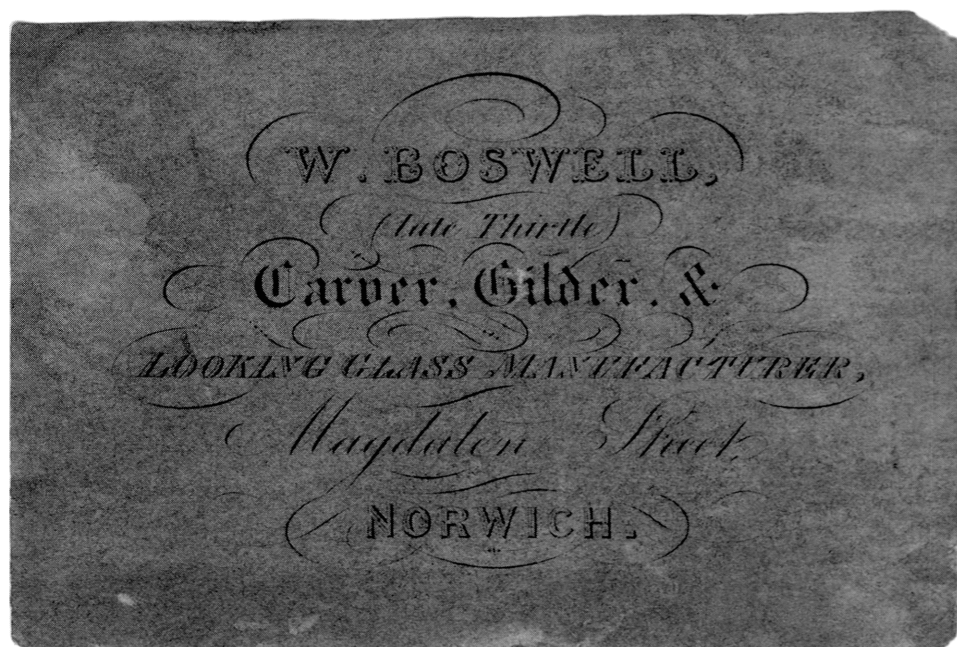 W. BOSWELL,
(late Thirtle)
Carver, Gilder, &
LOOKING GLASS MANUFACTURER,
Magdalen Street,
NORWICH.